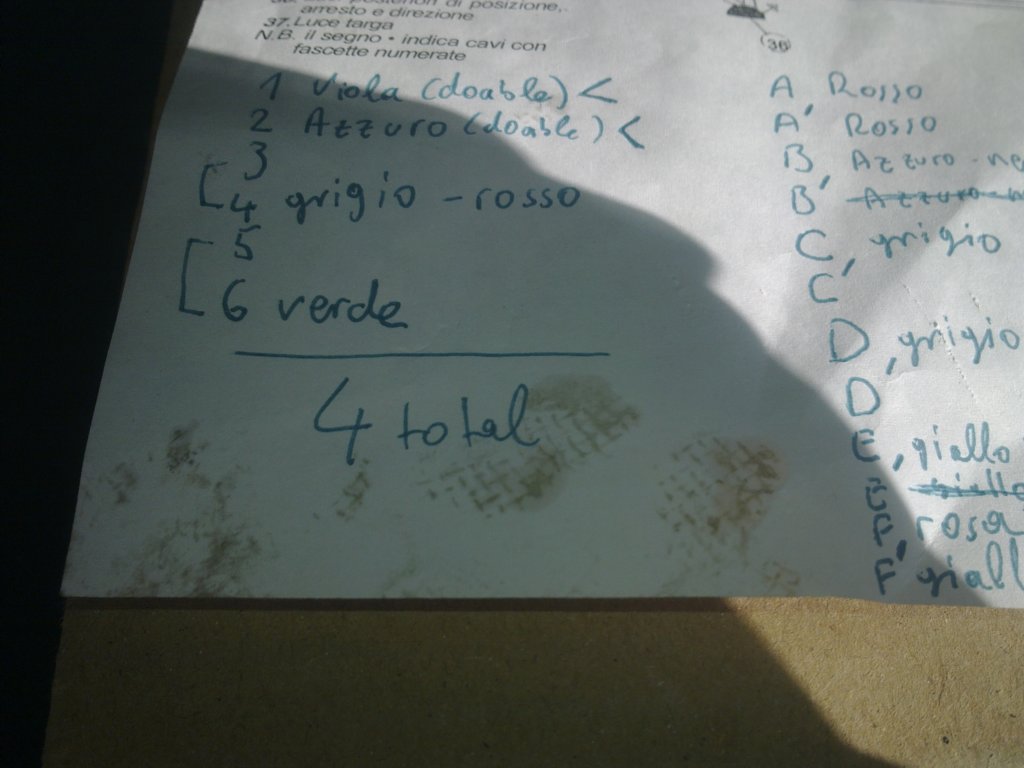 posteriori di posizione,
arresto e direzione
37. Luce targa
N.B. il segno • indica cavi con
fascette numerate
(36)
1 Viola (doable) <
2 Azzuro (doable) <
3
4 grigio - rosso
5
6 verde
4 total
A, Rosso
A' Rosso
B, Azzuro - ne
B'
C, grigio
C'
D, grigio
D
E, giallo
E
F, rosa
F' giall